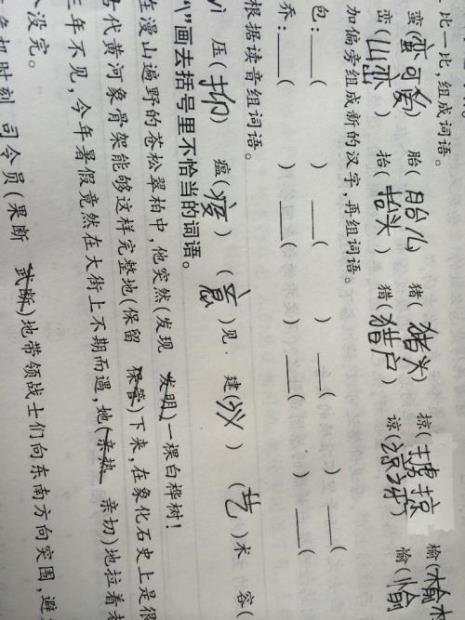 比一比,组成词语。
蛮(蛮可爱) 胎(胎儿) 猪(猪头) 掠(掳掠 榆(榆木
峦(山峦) 抬(抬头) 猎(猎户) 谅( ) 愉(愉
加偏旁组成新的汉字,再组词语。
包:___( ) ___( ) ___( ) ___(
乔:___( ) ___( ) ___( ) ___(
根据读音组词语。
yì 压(抑) 瘟(疫) (意)见 建(议) (艺)术 容(
“\”画去括号里不恰当的词语。
在漫山遍野的苍松翠柏中,他突然(发现 发明)一棵白桦树!
代黄河象骨架能够这样完整地(保留 保管)下来,在象化石史上是很
三年不见,今年暑假竟然在大街上不期而遇,她(亲热 亲切)地拉着
没完。
机时刻,司令员(果断 武断)地带领战士们向东南方向突围,避